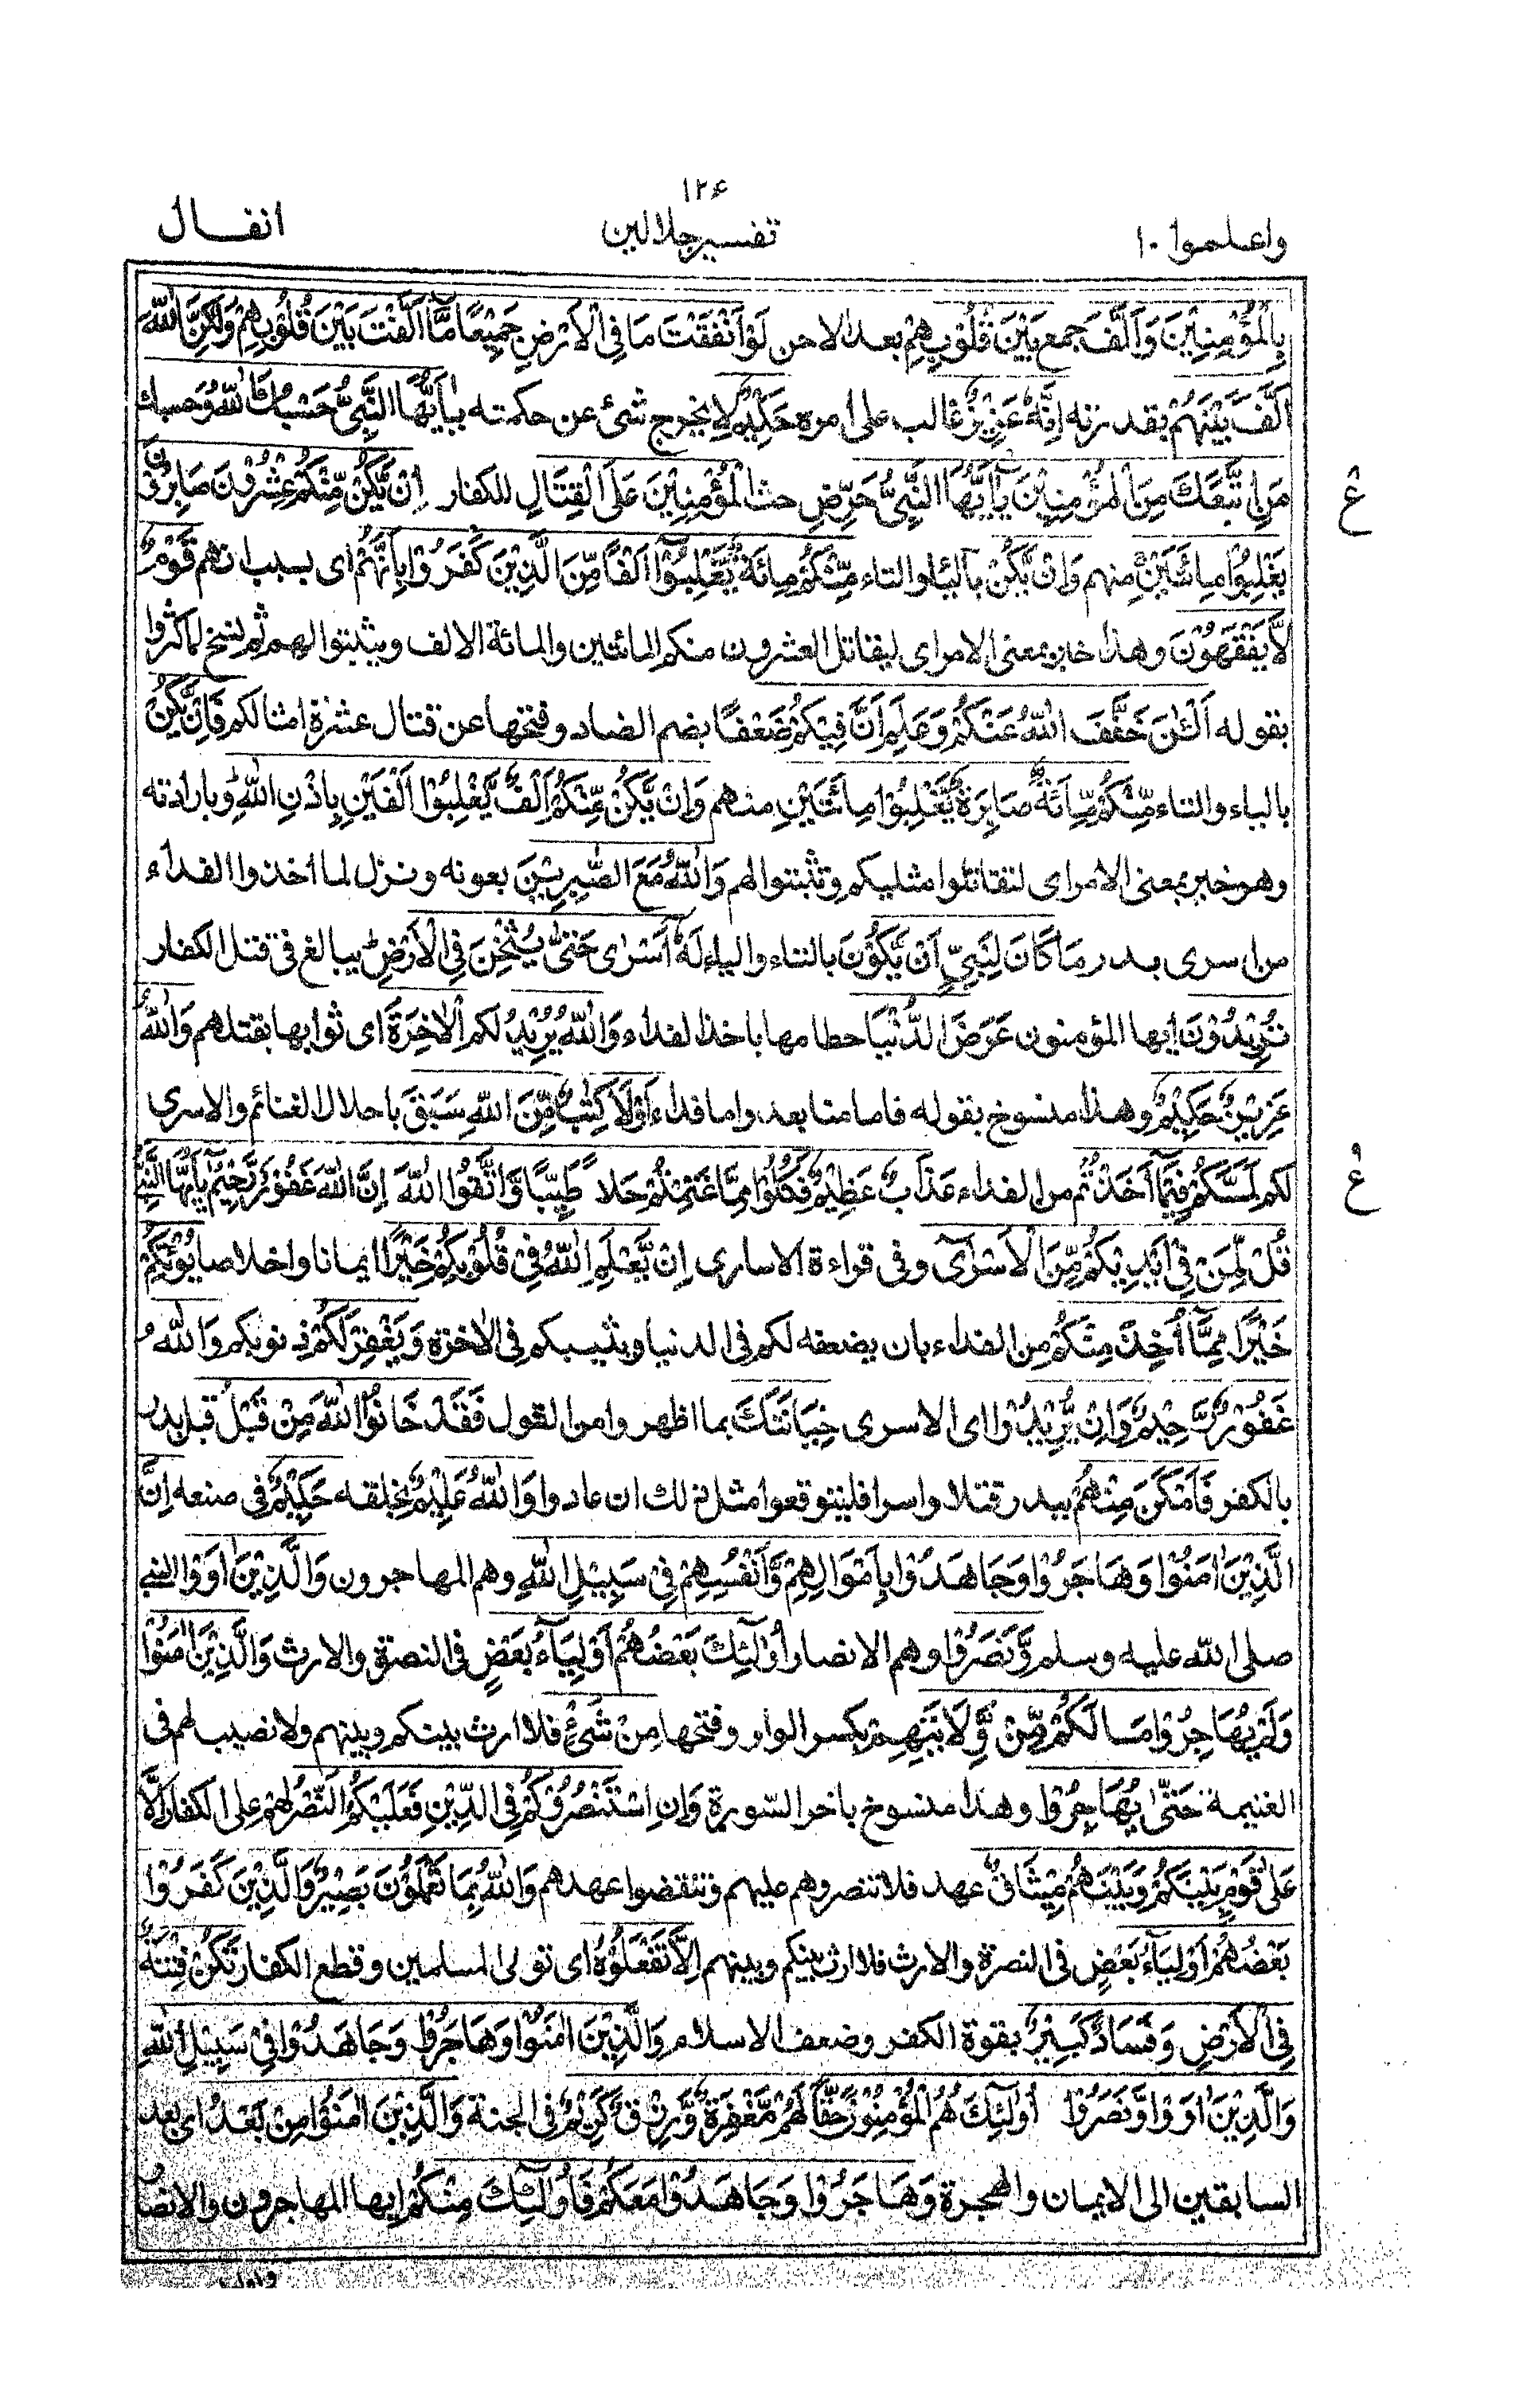 ۱۲۶
واعلموا ۱۰ تفسیر جلالین انفال
بِالْمُؤْمِنِيْنَ وَاَلَّفَ جمع بَيْنَ قُلُوْبِهِمْ بعد الاحن لَوْ اَنْفَقْتَ مَا فِي الْاَرْضِ جَمِيْعًا مَّآ اَلَّفْتَ بَيْنَ قُلُوْبِهِمْ وَلٰكِنَّ اللّٰهَ
اَلَّفَ بَيْنَهُمْ بقدرته اِنَّهٗ عَزِيْزٌ غالب على امره حَكِيْمٌ لا يخرج شئ عن حكمته يٰٓاَيُّهَا النَّبِيُّ حَسْبُكَ اللّٰهُ وَحسبك
مَنِ اتَّبَعَكَ مِنَ الْمُؤْمِنِيْنَ يٰٓاَيُّهَا النَّبِيُّ حَرِّضِ حث الْمُؤْمِنِيْنَ عَلَى الْقِتَالِ للكفار اِنْ يَّكُنْ مِّنْكُمْ عِشْرُوْنَ صَابِرُوْنَ
ع
يَغْلِبُوْا مِائَتَيْنِ منهم وَاِنْ يَّكُنْ بالياء والتاء مِّنْكُمْ مِائَةٌ يَّغْلِبُوْٓا اَلْفًا مِّنَ الَّذِيْنَ كَفَرُوْا بِاَنَّهُمْ اى بسبب انهم قَوْمٌ
لَّا يَفْقَهُوْنَ وهذا خبر بمعنى الامر اى ليقاتل العشرون منكم المائتين والمائة الالف ويثبتوا لهم ثم نسخ لما كثروا
بقوله اَلْـٰٔنَ خَفَّفَ اللّٰهُ عَنْكُمْ وَعَلِمَ اَنَّ فِيْكُمْ ضَعْفًا بضم الضاد وفتحها عن قتال عشرة امثالكم فَاِنْ يَّكُنْ
بالياء والتاء مِّنْكُمْ مِّائَةٌ صَابِرَةٌ يَّغْلِبُوْا مِائَتَيْنِ منهم وَاِنْ يَّكُنْ مِّنْكُمْ اَلْفٌ يَّغْلِبُوْٓا اَلْفَيْنِ بِاِذْنِ اللّٰهِ بارادته
وهو خبر بمعنى الامر اى لتقاتلوا مثليكم وتثبتوا لهم وَاللّٰهُ مَعَ الصّٰبِرِيْنَ بعونه ونزل لما اخذوا الفداء
من اسرى بدر مَا كَانَ لِنَبِيٍّ اَنْ يَّكُوْنَ بالتاء والياء لَهٗٓ اَسْرٰى حَتّٰى يُثْخِنَ فِي الْاَرْضِ يبالغ فى قتل الكفار
تُرِيْدُوْنَ ايها المؤمنون عَرَضَ الدُّنْيَا حطامها باخذ الفداء وَاللّٰهُ يُرِيْدُ لكم الْاٰخِرَةَ اى ثوابها بقتلهم وَاللّٰهُ
عَزِيْزٌ حَكِيْمٌ وهذا منسوخ بقوله فاما منا بعد واما فداء لَوْلَا كِتٰبٌ مِّنَ اللّٰهِ سَبَقَ باحلال الغنائم والاسرى
لكم لَمَسَّكُمْ فِيْمَآ اَخَذْتُمْ من الفداء عَذَابٌ عَظِيْمٌ فَكُلُوْا مِمَّا غَنِمْتُمْ حَلٰلًا طَيِّبًا وَّاتَّقُوا اللّٰهَ اِنَّ اللّٰهَ غَفُوْرٌ رَّحِيْمٌ يٰٓاَيُّهَا النَّبِيُّ
ع
قُلْ لِّمَنْ فِيْٓ اَيْدِيْكُمْ مِّنَ الْاَسْرٰٓى وفى قراءة الاسارى اِنْ يَّعْلَمِ اللّٰهُ فِيْ قُلُوْبِكُمْ خَيْرًا ايمانا واخلاصا يُّؤْتِكُمْ
خَيْرًا مِّمَّآ اُخِذَ مِنْكُمْ من الفداء بان يضعفه لكم فى الدنيا ويثيبكم فى الاخرة وَيَغْفِرْ لَكُمْ ذنوبكم وَاللّٰهُ
غَفُوْرٌ رَّحِيْمٌ وَاِنْ يُّرِيْدُوْا اى الاسرى خِيَانَتَكَ بما اظهروا من القول فَقَدْ خَانُوا اللّٰهَ مِنْ قَبْلُ قبل بدر
بالكفر فَاَمْكَنَ مِنْهُمْ ببدر قتلا واسرا فليتوقعوا مثل ذلك ان عادوا وَاللّٰهُ عَلِيْمٌ بخلقه حَكِيْمٌ فى صنعه اِنَّ
الَّذِيْنَ اٰمَنُوْا وَهَاجَرُوْا وَجَاهَدُوْا بِاَمْوَالِهِمْ وَاَنْفُسِهِمْ فِيْ سَبِيْلِ اللّٰهِ وهم المهاجرون وَالَّذِيْنَ اٰوَوْا النبى
صلى الله عليه وسلم وَّنَصَرُوْٓا وهم الانصار اُولٰٓئِكَ بَعْضُهُمْ اَوْلِيَآءُ بَعْضٍ فى النصرة والارث وَالَّذِيْنَ اٰمَنُوْا
وَلَمْ يُهَاجِرُوْا مَا لَكُمْ مِّنْ وَّلَايَتِهِمْ بكسر الواو وفتحها مِنْ شَيْءٍ فلا ارث بينكم وبينهم ولا نصيب لهم فى
الغنيمة حَتّٰى يُهَاجِرُوْا وهذا منسوخ باخر السورة وَاِنِ اسْتَنْصَرُوْكُمْ فِي الدِّيْنِ فَعَلَيْكُمُ النَّصْرُ لهم على الكفار اِلَّا
عَلٰى قَوْمٍۭ بَيْنَكُمْ وَبَيْنَهُمْ مِّيْثَاقٌ عهد فلا تنصروهم عليهم وتنقضوا عهدهم وَاللّٰهُ بِمَا تَعْمَلُوْنَ بَصِيْرٌ وَالَّذِيْنَ كَفَرُوْا
بَعْضُهُمْ اَوْلِيَآءُ بَعْضٍ فى النصرة والارث فلا ارث بينكم وبينهم اِلَّا تَفْعَلُوْهُ اى تولى المسلمين وقطع الكفار تَكُنْ فِتْنَةٌ
فِي الْاَرْضِ وَفَسَادٌ كَبِيْرٌ بقوة الكفر وضعف الاسلام وَالَّذِيْنَ اٰمَنُوْا وَهَاجَرُوْا وَجَاهَدُوْا فِيْ سَبِيْلِ اللّٰهِ
وَالَّذِيْنَ اٰوَوْا وَّنَصَرُوْٓا اُولٰٓئِكَ هُمُ الْمُؤْمِنُوْنَ حَقًّا لَهُمْ مَّغْفِرَةٌ وَّرِزْقٌ كَرِيْمٌ فى الجنة وَالَّذِيْنَ اٰمَنُوْا مِنْ بَعْدُ اى بعد
السابقين الى الايمان والهجرة وَهَاجَرُوْا وَجَاهَدُوْا مَعَكُمْ فَاُولٰٓئِكَ مِنْكُمْ ايها المهاجرون والانصار